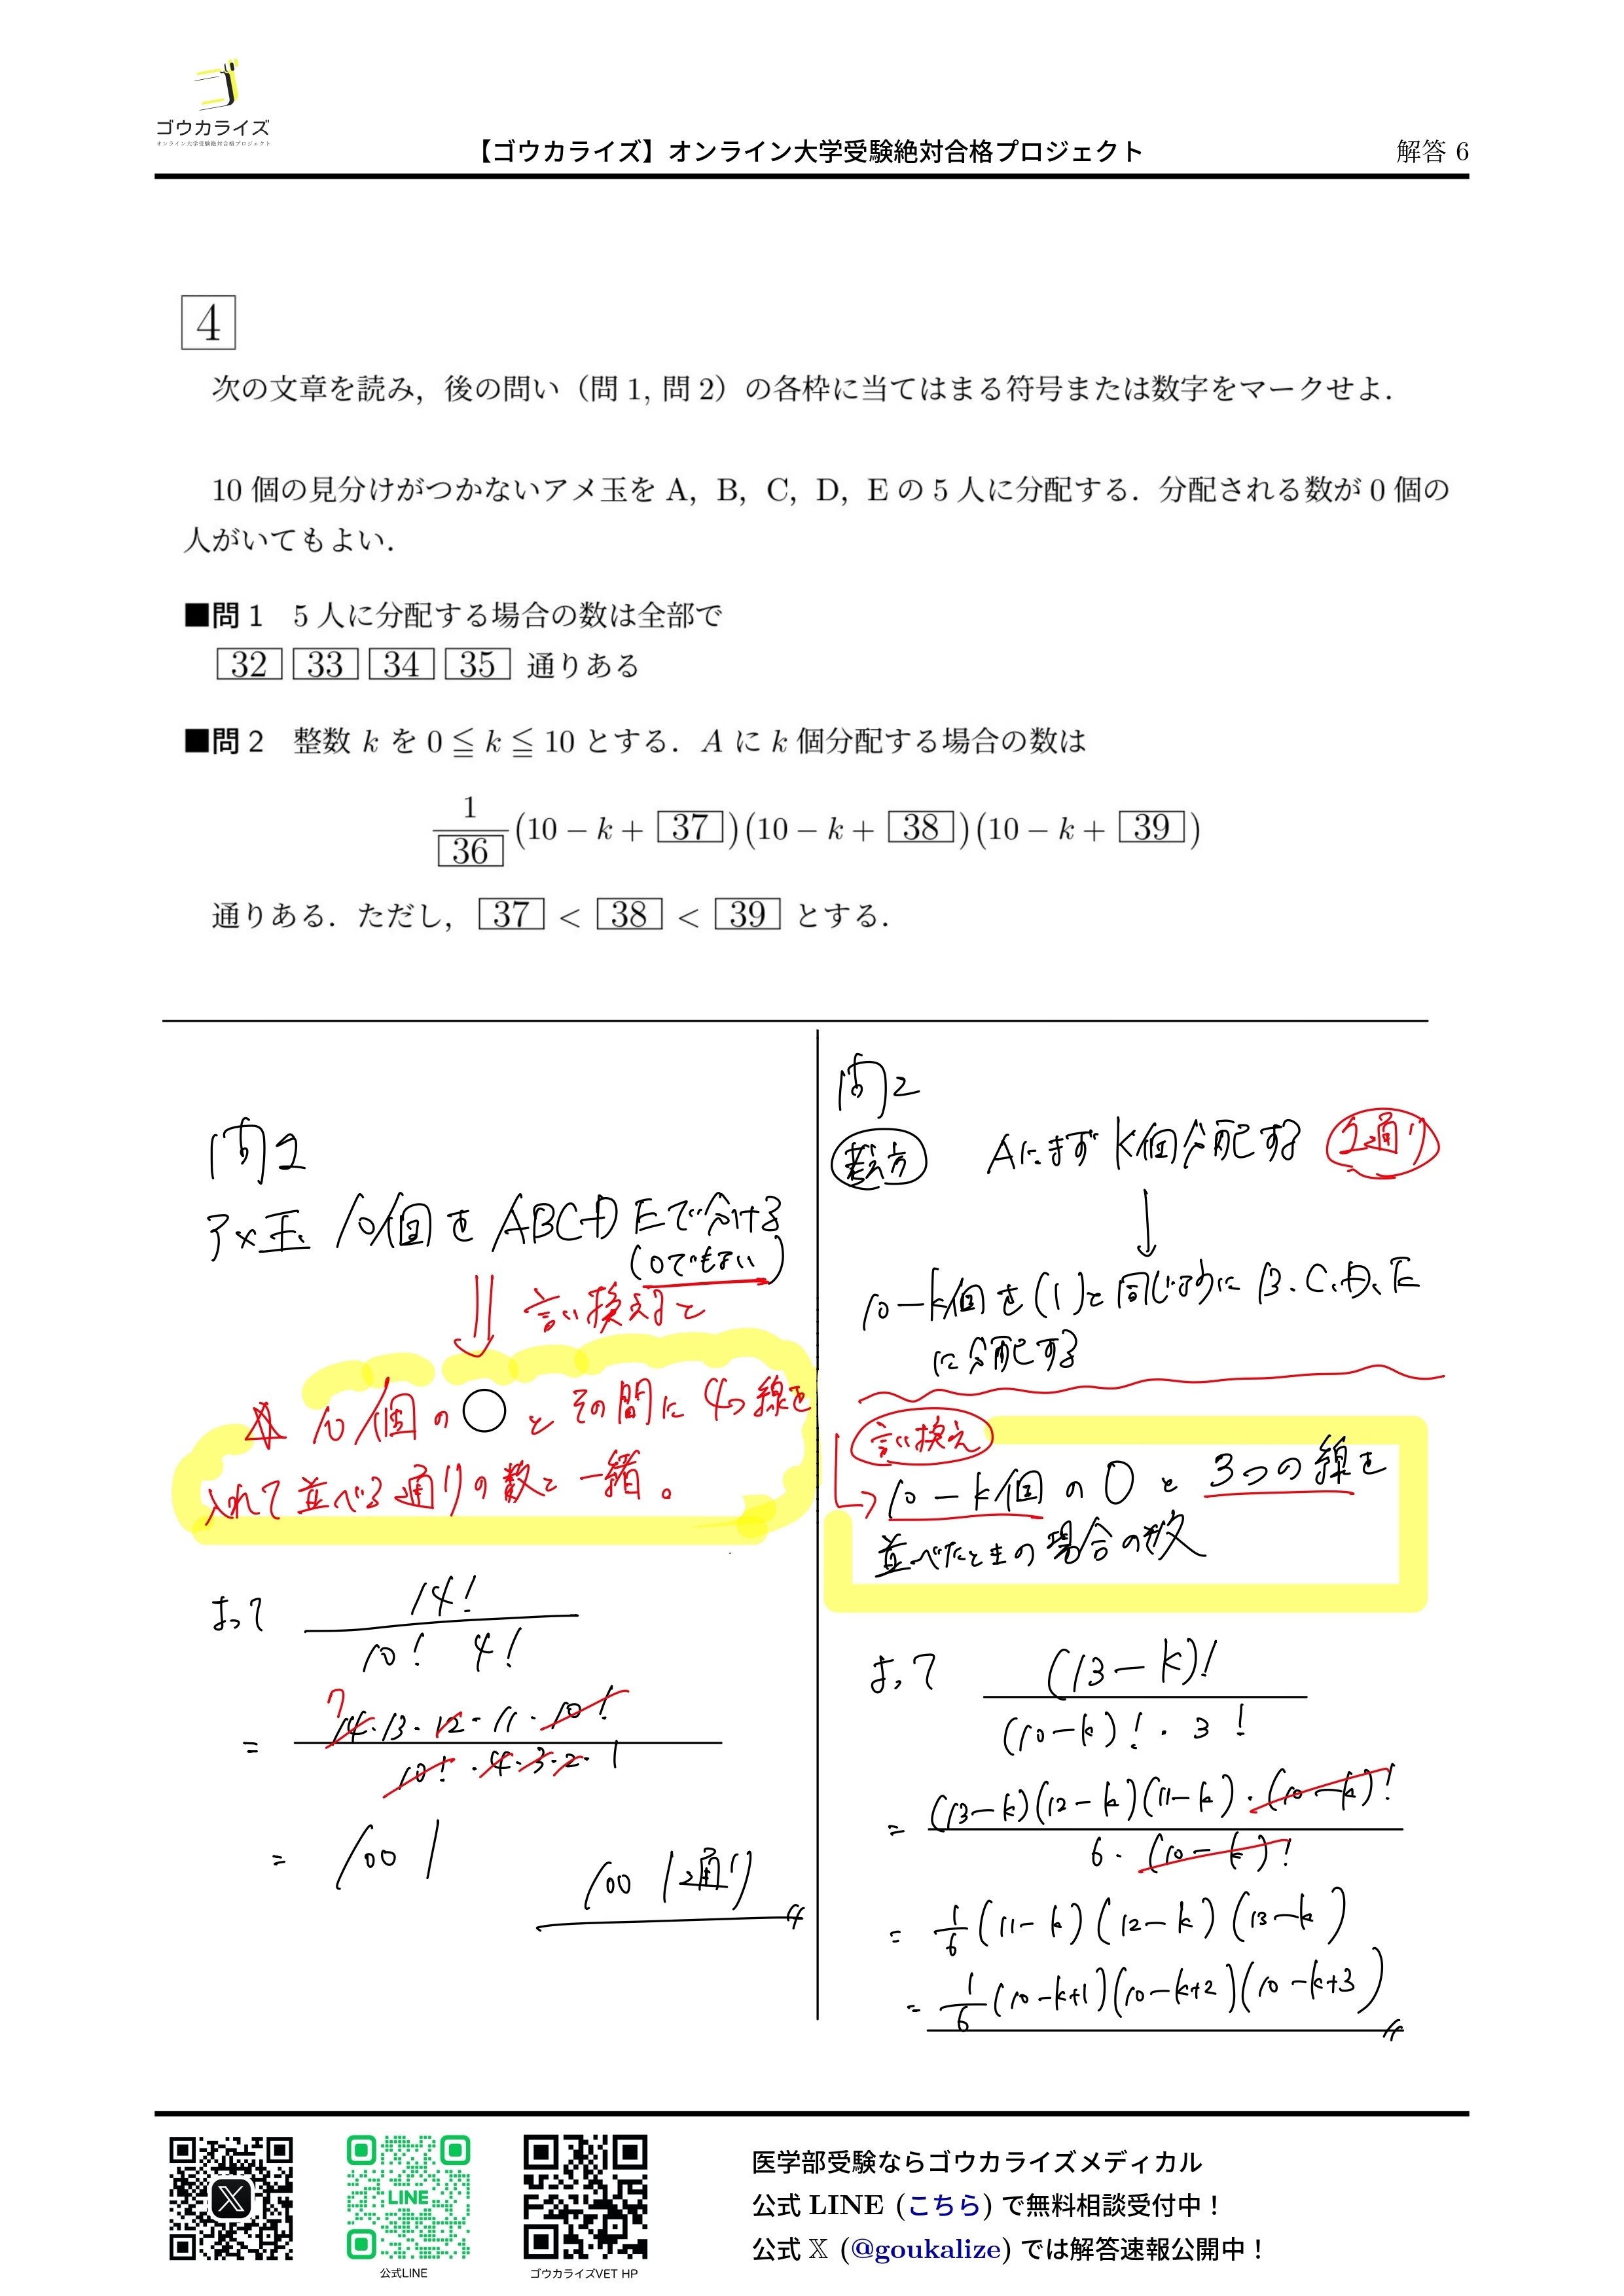 ゴウカライズ
オンライン大学受験絶対合格プロジェクト
【ゴウカライズ】オンライン大学受験絶対合格プロジェクト
解答 6
4
次の文章を読み，後の問い（問 1, 問 2）の各枠に当てはまる符号または数字をマークせよ．
10 個の見分けがつかないアメ玉を A，B，C，D，E の 5 人に分配する．分配される数が 0 個の
人がいてもよい．
■問 1　5 人に分配する場合の数は全部で
32 33 34 35 通りある
■問 2　整数 k を 0 ≦ k ≦ 10 とする．A に k 個分配する場合の数は
1/36 (10 − k + 37)(10 − k + 38)(10 − k + 39)
通りある．ただし， 37 < 38 < 39 とする．
問1
アメ玉 10個を ABCD Eで分ける
(0でもよい)
言い換えると
☆ 10個の○とその間に4つ線を
入れて並べる通りの数と一緒。
よって 14! / 10! 4!
= 7 14・13・12・11・10! / 10!・4・3・2・1
= 1001
1001通り
問2
考え方 Aにまず k個分配する 1通り
↓
10−k個を(1)と同じように B、C、D、E
に分配する
言い換え
10−k個の○と3つの線を
並べたときの場合の数
よって (13−k)! / (10−k)!・3!
= (13−k)(12−k)(11−k)・(10−k)! / 6・(10−k)!
= 1/6 (11−k)(12−k)(13−k)
= 1/6 (10−k+1)(10−k+2)(10−k+3)
LINE
公式LINE
ゴウカライズVET HP
医学部受験ならゴウカライズメディカル
公式 LINE (こちら) で無料相談受付中！
公式 𝕏 (@goukalize) では解答速報公開中！